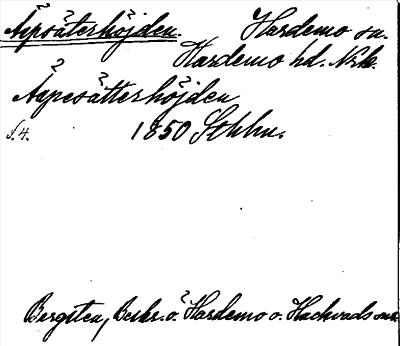 Äspsäterhöjden. Hardemo sn.
Hardemo hd. Nrk.
Äspesätterhöjden
s.4. 1850 Sthlm.
Bergsten, Beskr. ö. Hardemo o. Hackvads snr